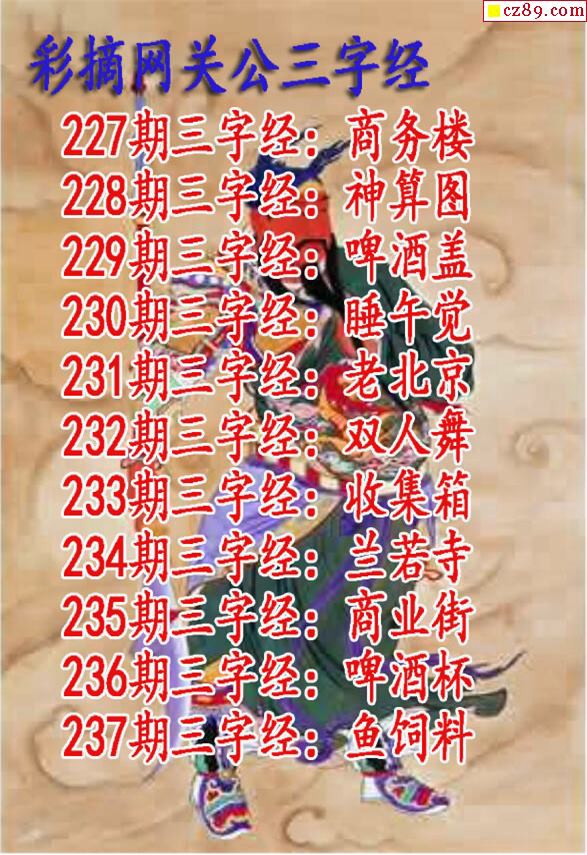 cz89.com
彩摘网关公三字经
227期三字经：商务楼
228期三字经：神算图
229期三字经：啤酒盖
230期三字经：睡午觉
231期三字经：老北京
232期三字经：双人舞
233期三字经：收集箱
234期三字经：兰若寺
235期三字经：商业街
236期三字经：啤酒杯
237期三字经：鱼饲料